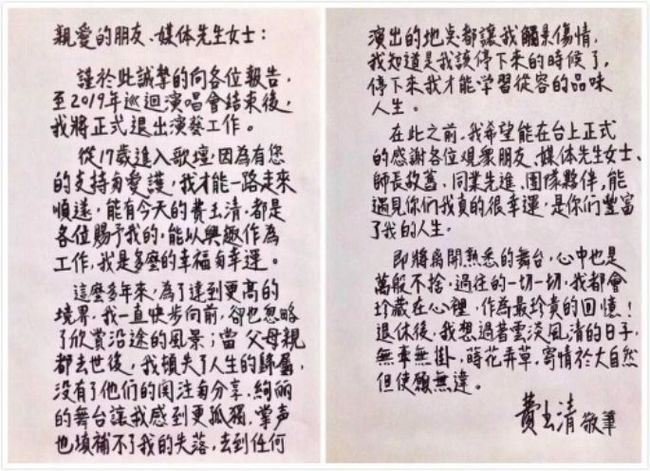 親愛的朋友、媒体先生女士：
謹於此誠摯的向各位報告，
至2019年巡迴演唱會結束後，
我將正式退出演藝工作。
從17歲進入歌壇，因為有您
的支持匈愛護，我才能一路走來
順遂，能有今天的費玉清，都是
各位賜予我的，能以興趣作為
工作，我是多麼的幸福匈幸運。
這麼多年來，為了達到更高的
境界，我一直快步向前，卻也忽略
了欣賞沿途的風景；當父母親
都去世後，我頓失了人生的歸屬，
没有了他們的関注匈分享，絢麗
的舞台讓我感到更孤獨，掌声
也填補不了我的失落，去到任何
演出的地点都讓我觸景傷情，
我知道是我該停下來的時候了，
停下來我才能学習從容的品味
人生。
在此之前，我希望能在台上正式
的感谢各位观衆朋友、媒体先生女士、
師長故舊、同業先進、團隊夥伴，能
遇見你們我真的很幸運，是你們豐富
了我的人生。
即將离開熟悉的舞台，心中也是
萬般不捨，過往的一切一切，我都會
珍藏在心裡，作為最珍貴的回憶！
退休後，我想過著雲淡風清的日子，
無牽無掛，蒔花弄草，寄情於大自然
但使願無違。
費玉清 敬筆